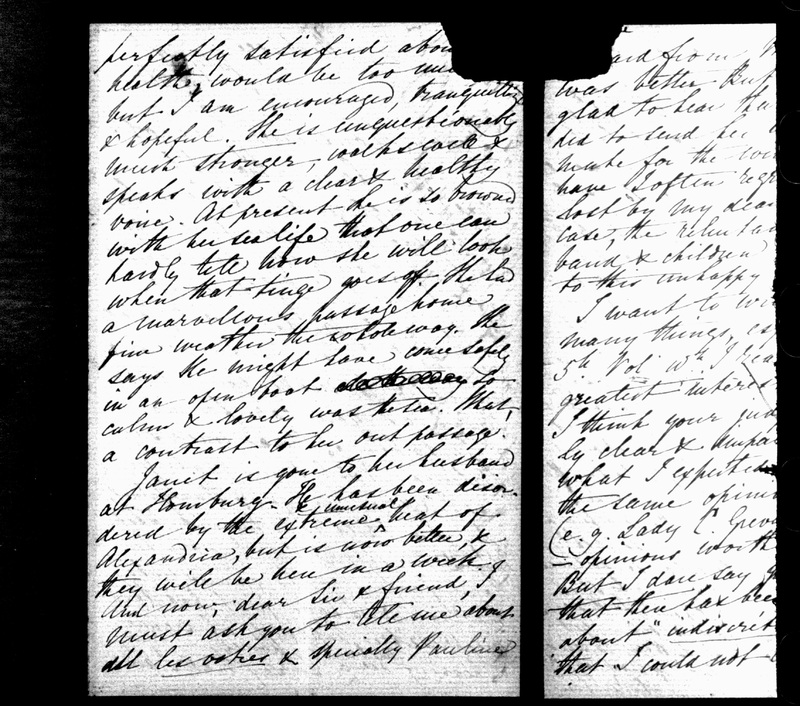 perfectly satisfied abou
health, would be too mu
but I am encouraged, tranquillized
& hopeful. She is unquestionably
much stronger, walks well &
speaks with a clear & healthy
voice. At present she is so browned
with her sea life that one can
hardly tell how she will look
when that tinge goes off. She had
a marvellous passage home
fine weather the whole way. She
says she might have come safely
in an open boat so
calm & lovely was the sea. What
a contrast to her out passage.
Janet is gone to her husband
at Homburg. He has been disor-
dered by the extreme & unusual heat of
Alexandria, but is now better, &
they will be here in a week.
And now, dear Sir & friend, I
must ask you to tell me about
all les votres & specially Pauline
eard from
was better. But
glad to hear tha
ded to send her
make for the win
have I often regr
lost by my dear
case, the reluctan
band & children
to this unhappy
I want to wri
many things, esp
5th Vol: wh I rea
greatest interes
I think your jud
ly clear & impar
what I expected
the same opini
(e.g. Lady C Grev
- opinions worth
But I dare say y
that there has bee
about "indiscret
that I could not